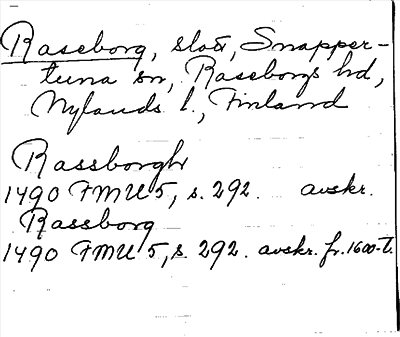 Raseborg, slott, Snapper-
tuna sn, Raseborgs hd,
Nylands l., Finland
Rassborgh
1490 FMU 5, s. 292. avskr.
Rassborg
1490 FMU 5, s. 292. avskr. fr. 1600-t.